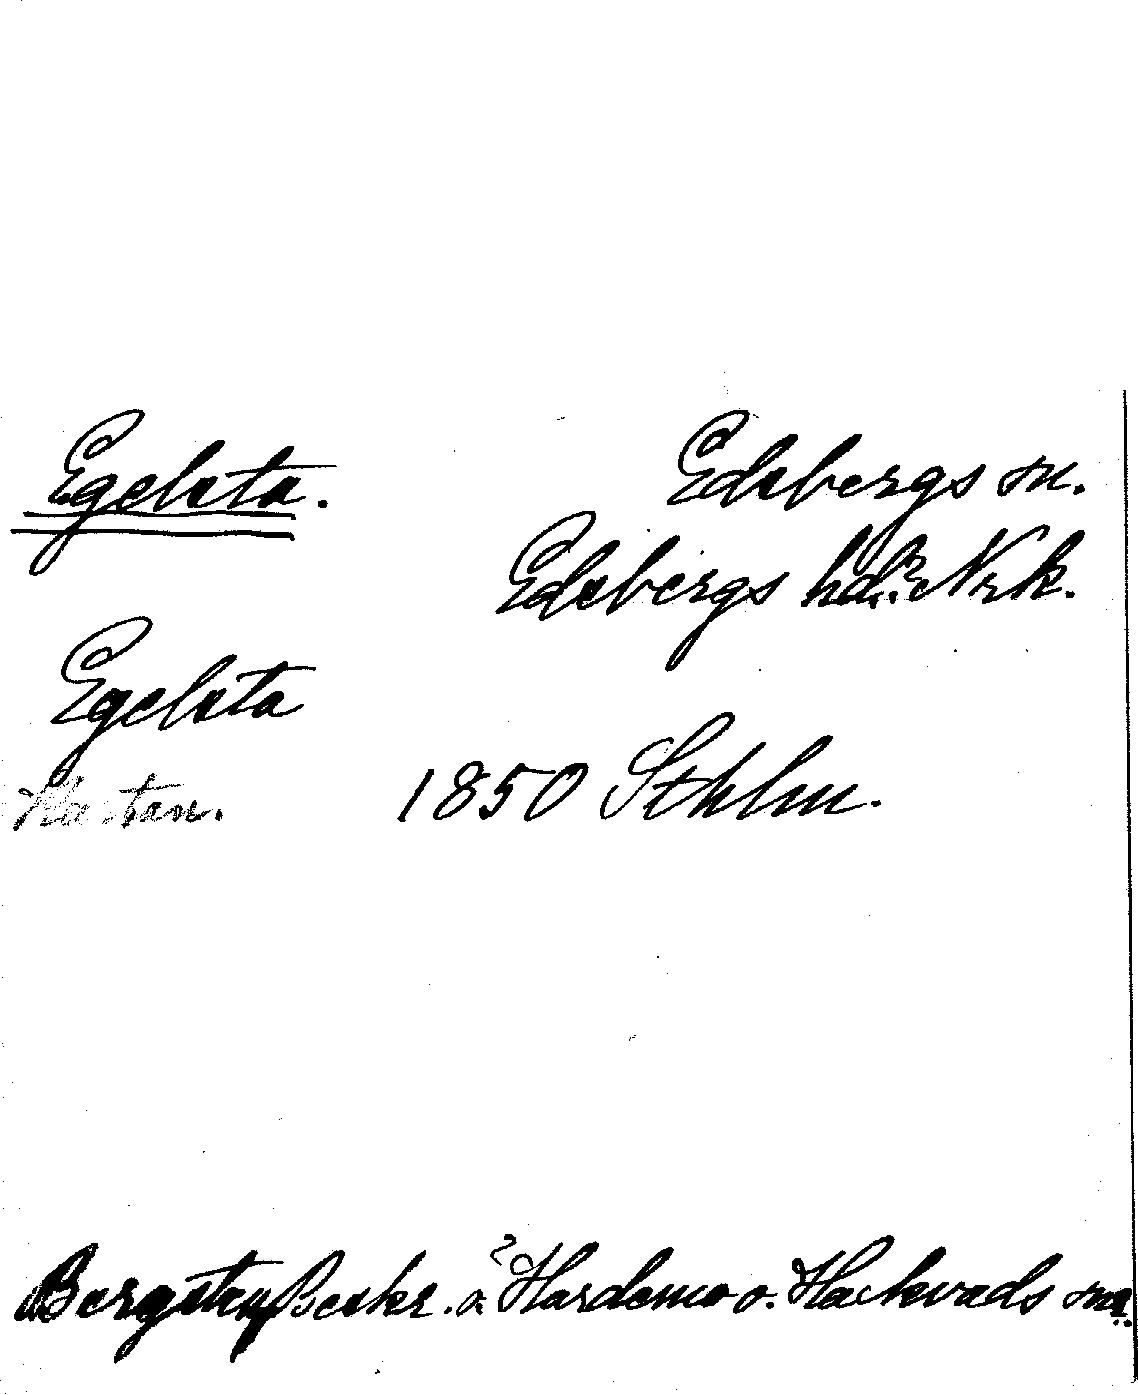 Egelsta. Edsbergs sn.
Edsbergs hdr. Nrk.
Egelsta
Kartan. 1850 Sthlm.
Bergsten Beskr. o. Hardemo o. Hackvads snr.